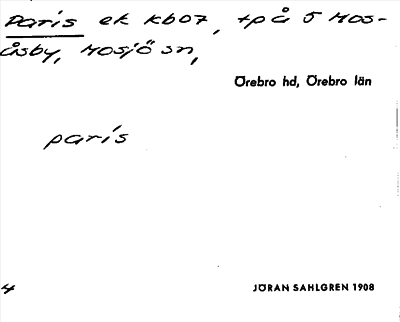 Paris ek kb07, tpå 5 Mos-
åsby, Mosjö sn,
Örebro hd, Örebro län
parís
4
JÖRAN SAHLGREN 1908